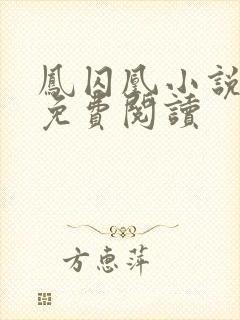 鳳囚凰小說
免費閱讀
方惠萍